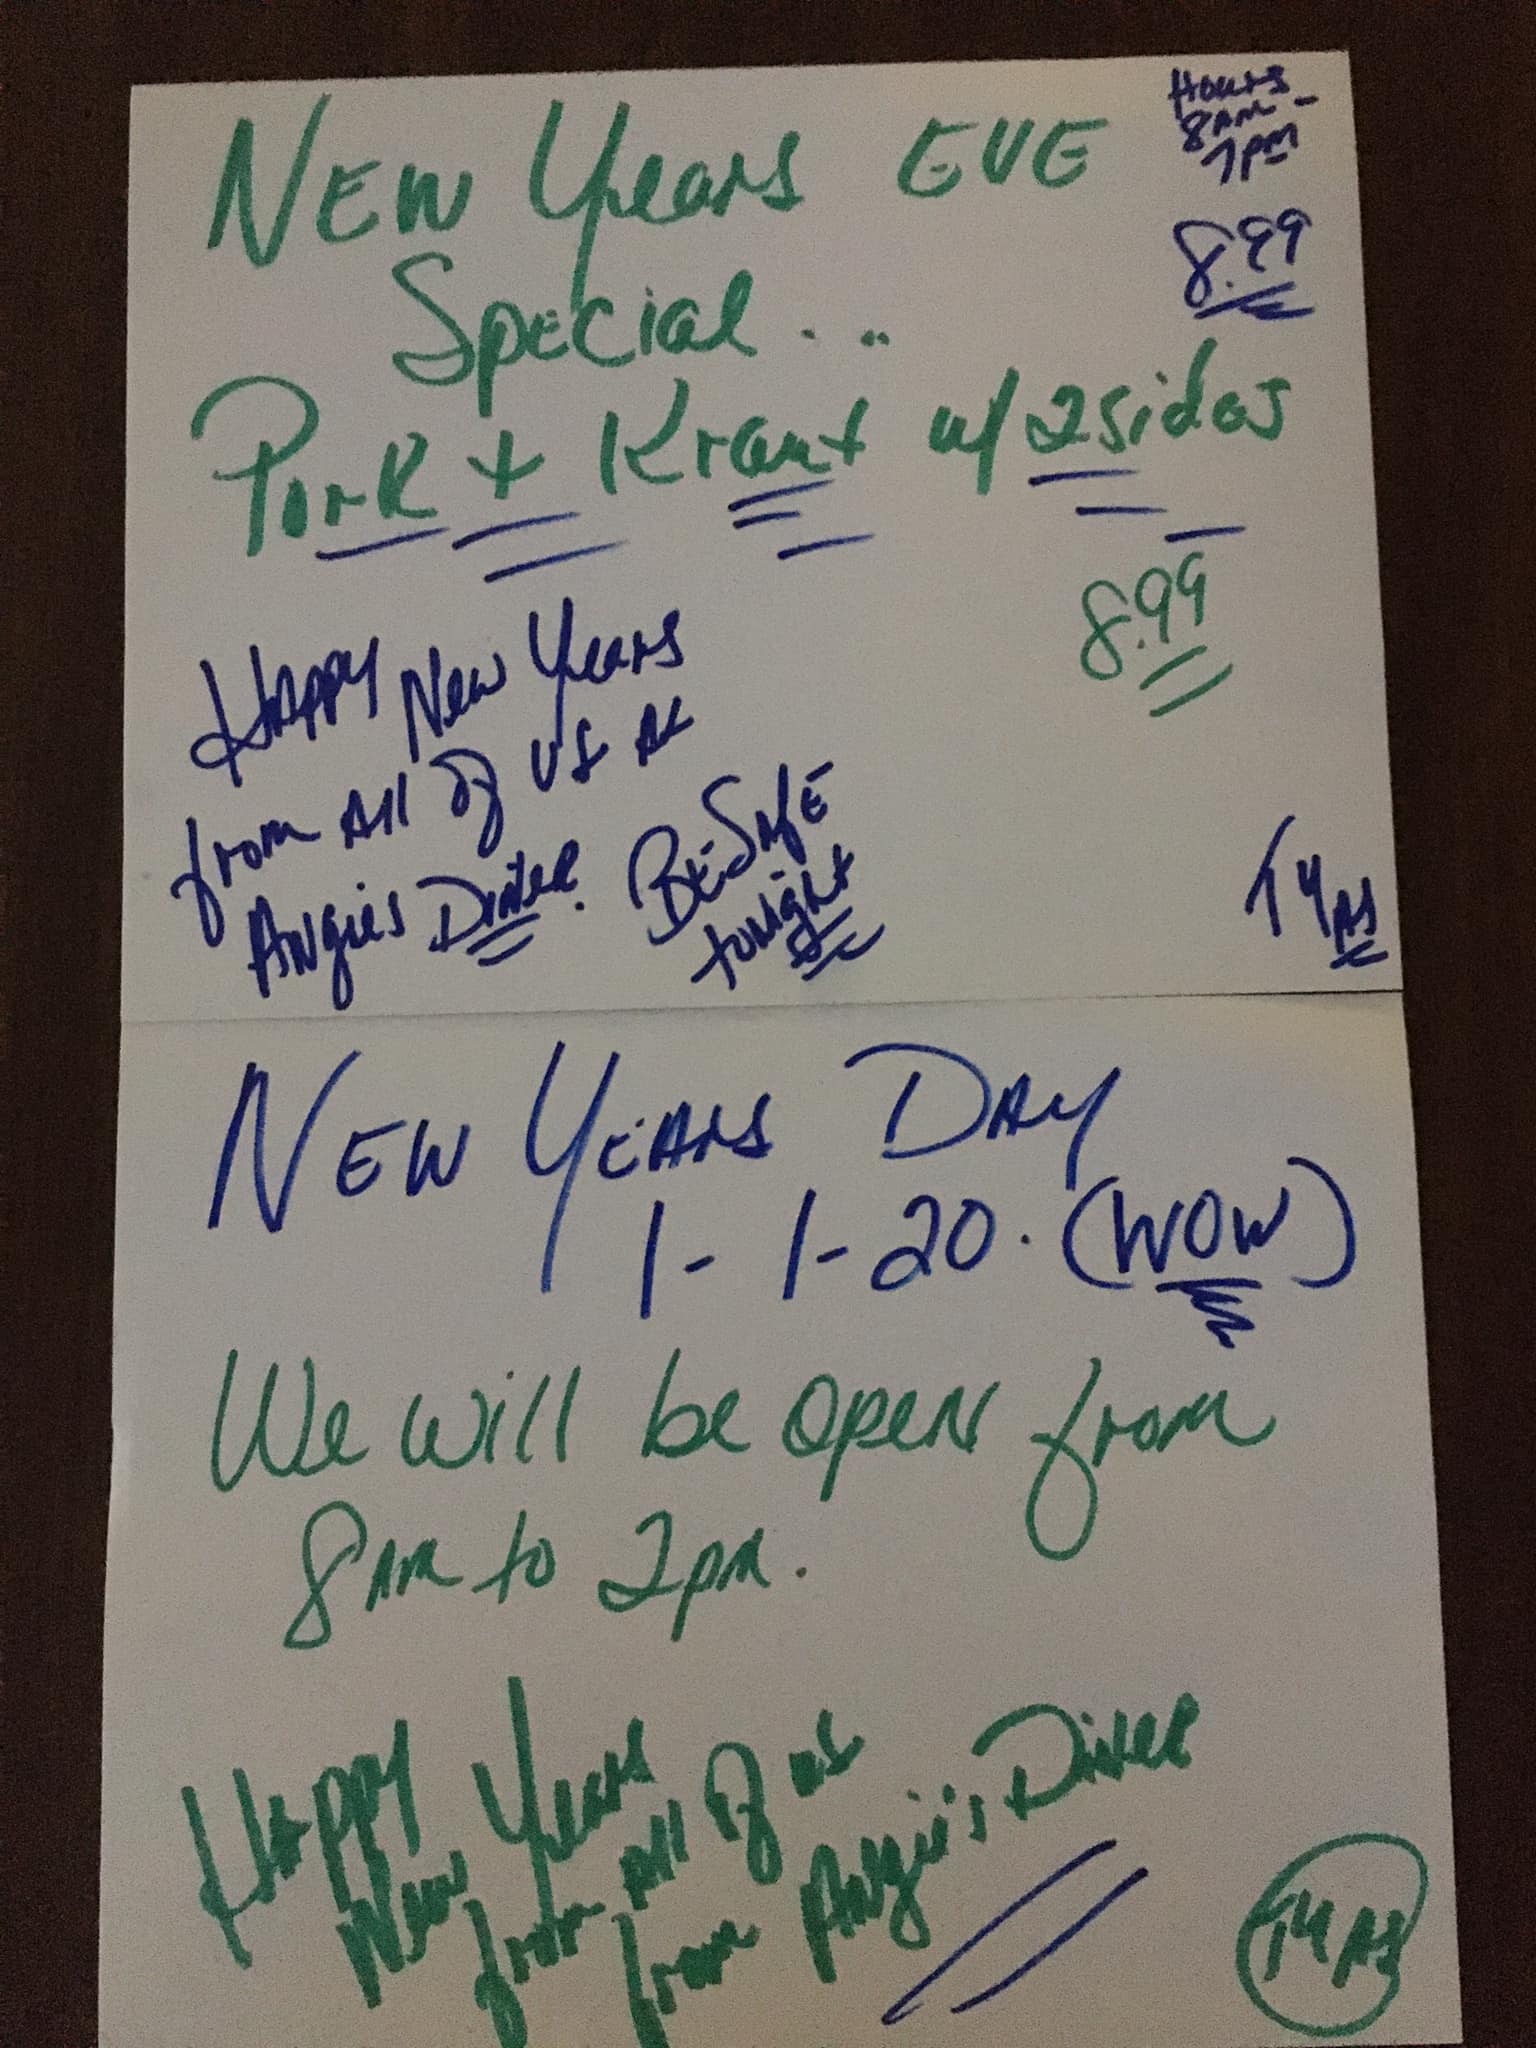 New Years EVE
Hours
8AM -
7pm
8.99
Special...
Pork + Kraut w/ 2 sides
8.99
Happy New Years
from All of us at
Angies Diner. BE SAFE
tonight
TY AS
New YEARS DAY
1-1-20. (WOW)
We will be open from
8AM to 2pm.
Happy
New Years
from All of us
from Angie's Diner
TY AS